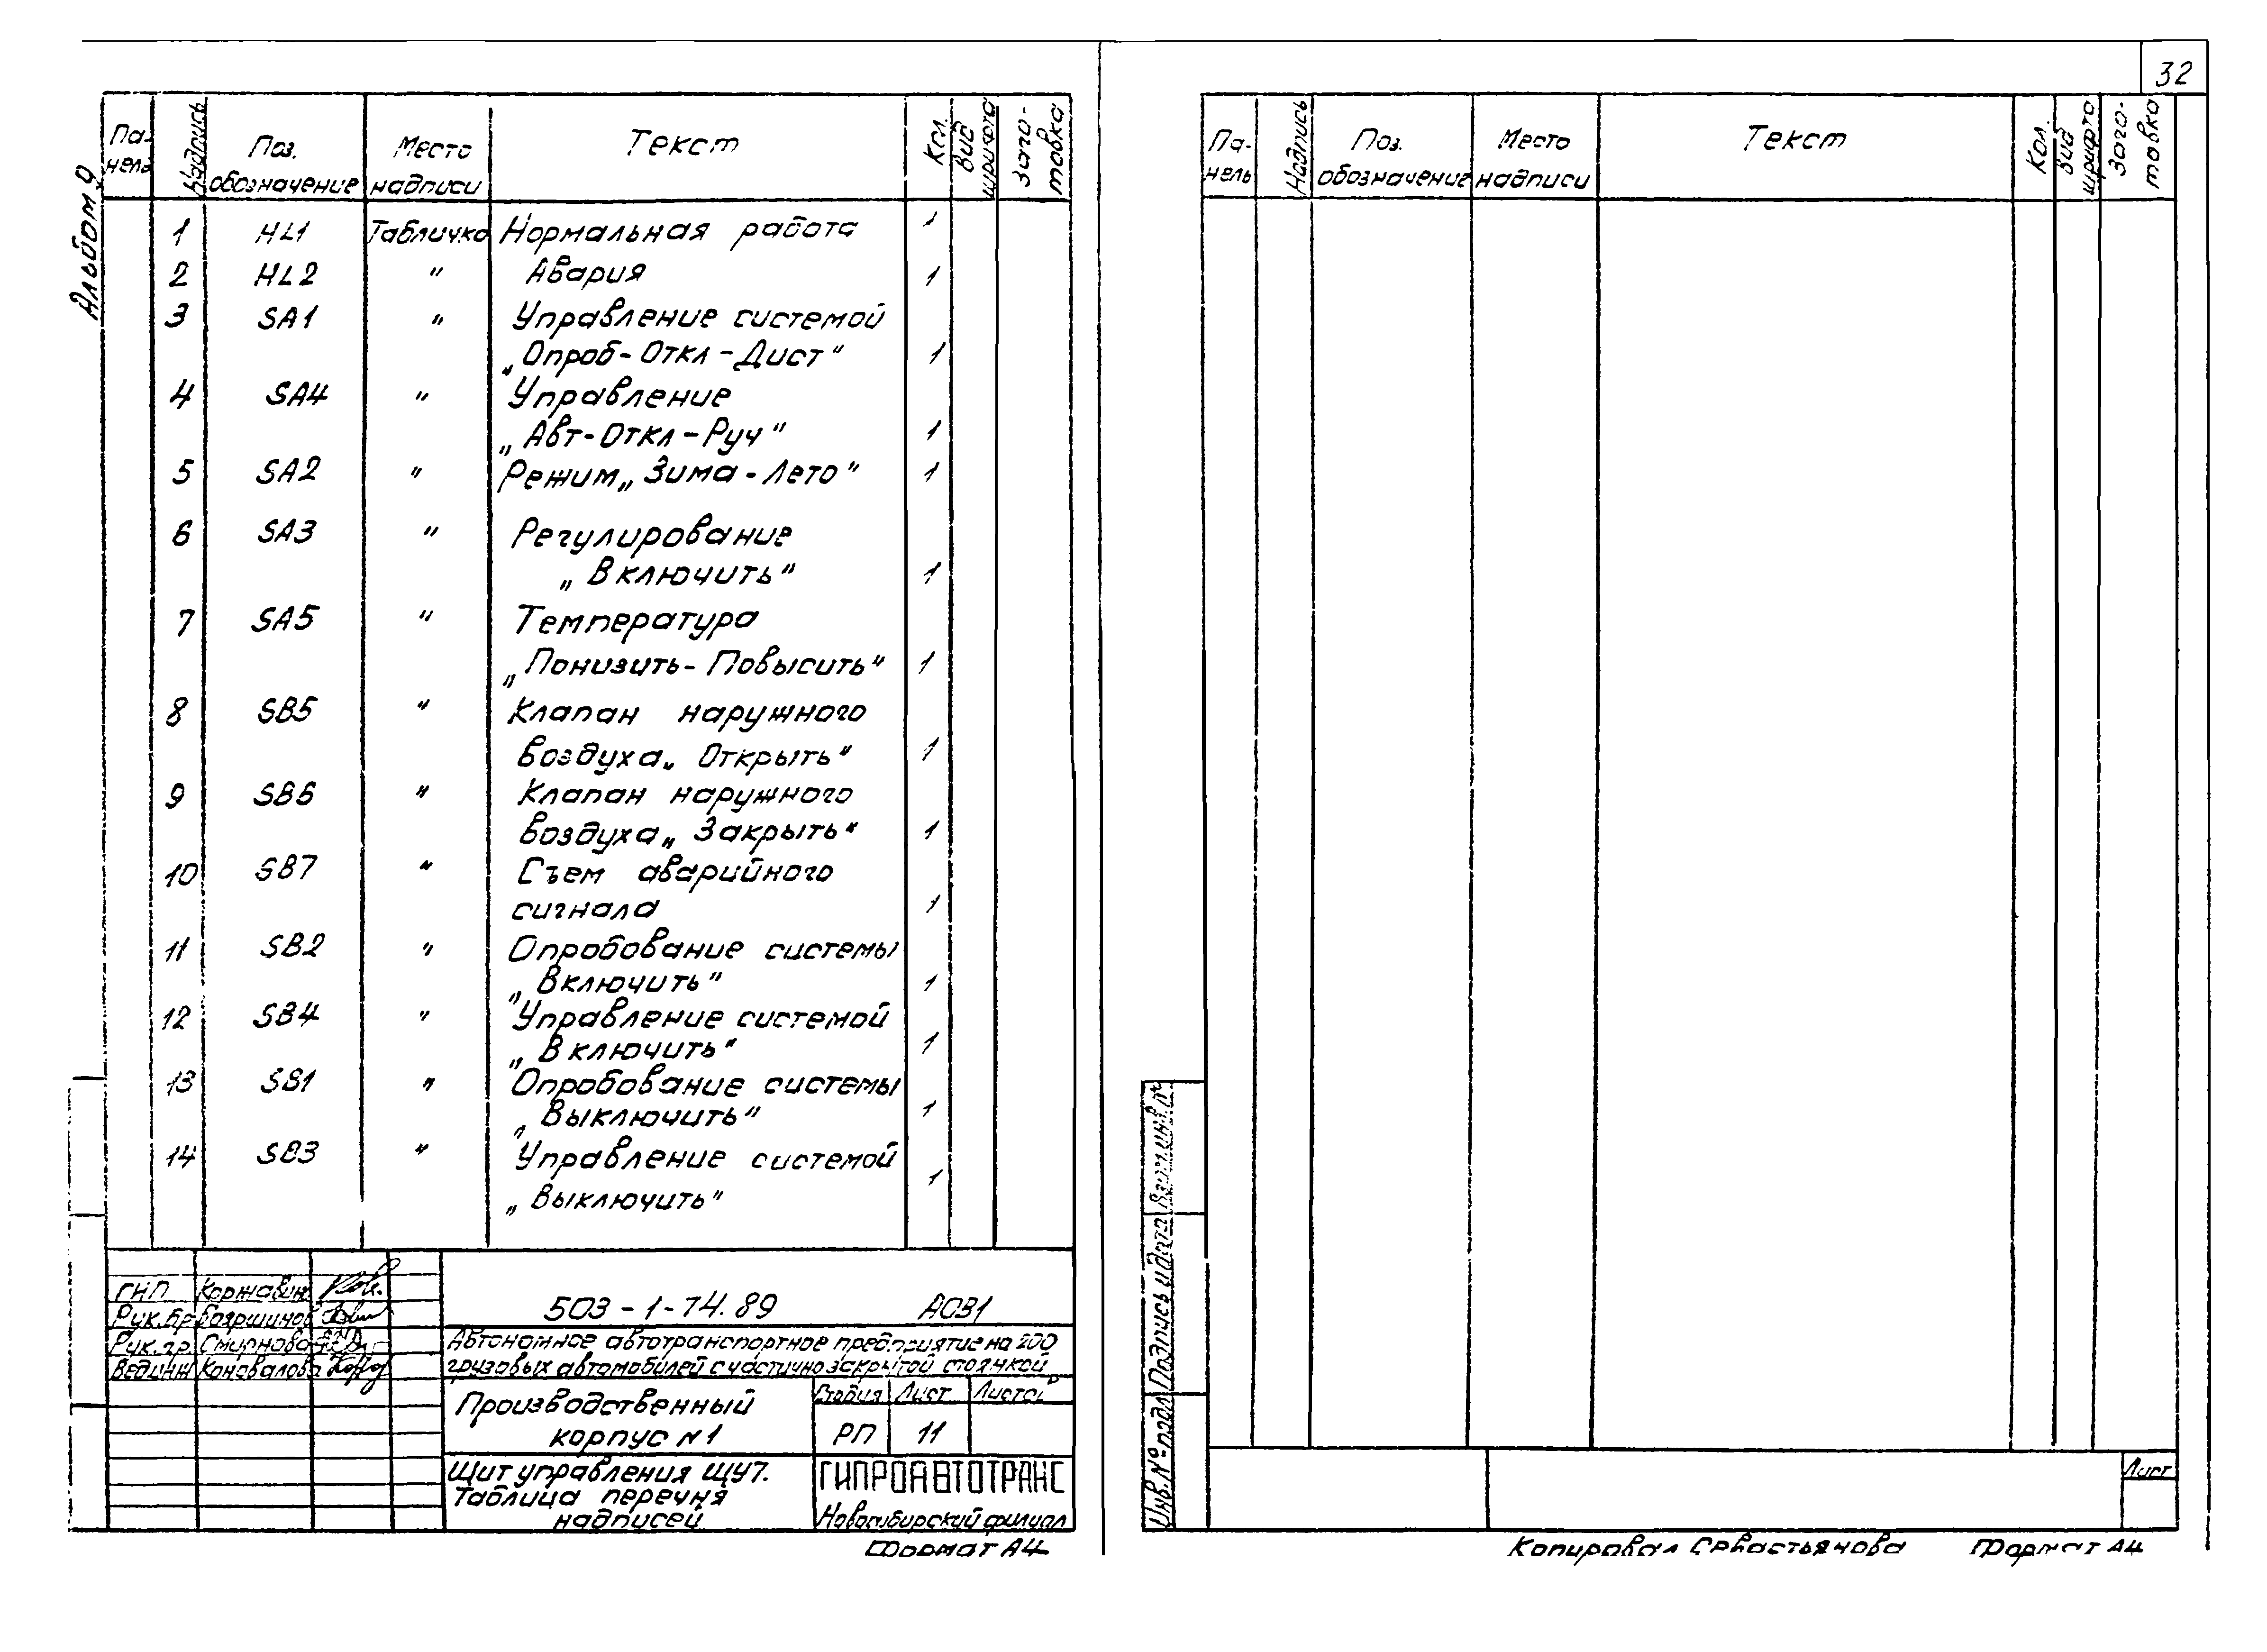 32
Альбом 9
Па-
нель
Надпись
Поз.
обозначение
Место
надписи
Текст
Кол.
Вид
шрифта
Заго-
товка
1 HL1 Табличка Нормальная работа 1
2 HL2 " Авария 1
3 SA1 " Управление системой
„Опроб-Откл-Дист" 1
4 SA4 " Управление
„Авт-Откл-Руч" 1
5 SA2 " Режим „Зима-Лето" 1
6 SA3 " Регулирование
„Включить" 1
7 SA5 " Температура
„Понизить-Повысить" 1
8 SB5 " Клапан наружного
воздуха „Открыть" 1
9 SB6 " Клапан наружного
воздуха „Закрыть" 1
10 SB7 " Съем аварийного
сигнала 1
11 SB2 " Опробование системы
„Включить" 1
12 SB4 " Управление системой
„Включить" 1
13 SB1 " Опробование системы
„Выключить" 1
14 SB3 " Управление системой
„Выключить" 1
ГИП Коржавин
Рук.бр Бояршинов
Рук.гр. Смирнова
Вед.инж Коновалова
503-1-74.89 АОВ1
Автономное автотранспортное предприятие на 200
грузовых автомобилей с частично закрытой стоянкой
Производственный
корпус №1
Стадия Лист Листов
РП 11
Щит управления ЩУ7.
Таблица перечня
надписей
ГИПРОАВТОТРАНС
Новосибирский филиал
Формат А4
Па-
нель
Надпись
Поз.
обозначение
Место
надписи
Текст
Кол.
Вид
шрифта
Заго-
товка
Взам.инв.№
Подпись и дата
Инв.№ подл
Лист
Копировал Севастьянова Формат А4